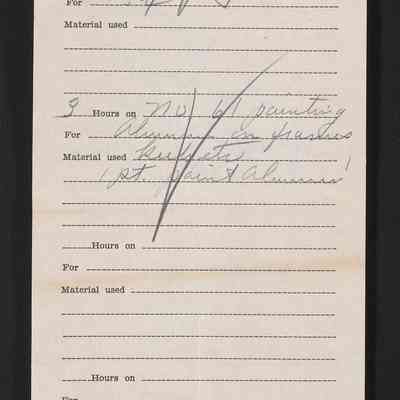 For
Material used
3 Hours on No 61 painting
For Alumn on frames
Material used
1 pt. paint Alumn
Hours on
For
Material used
Hours on
For